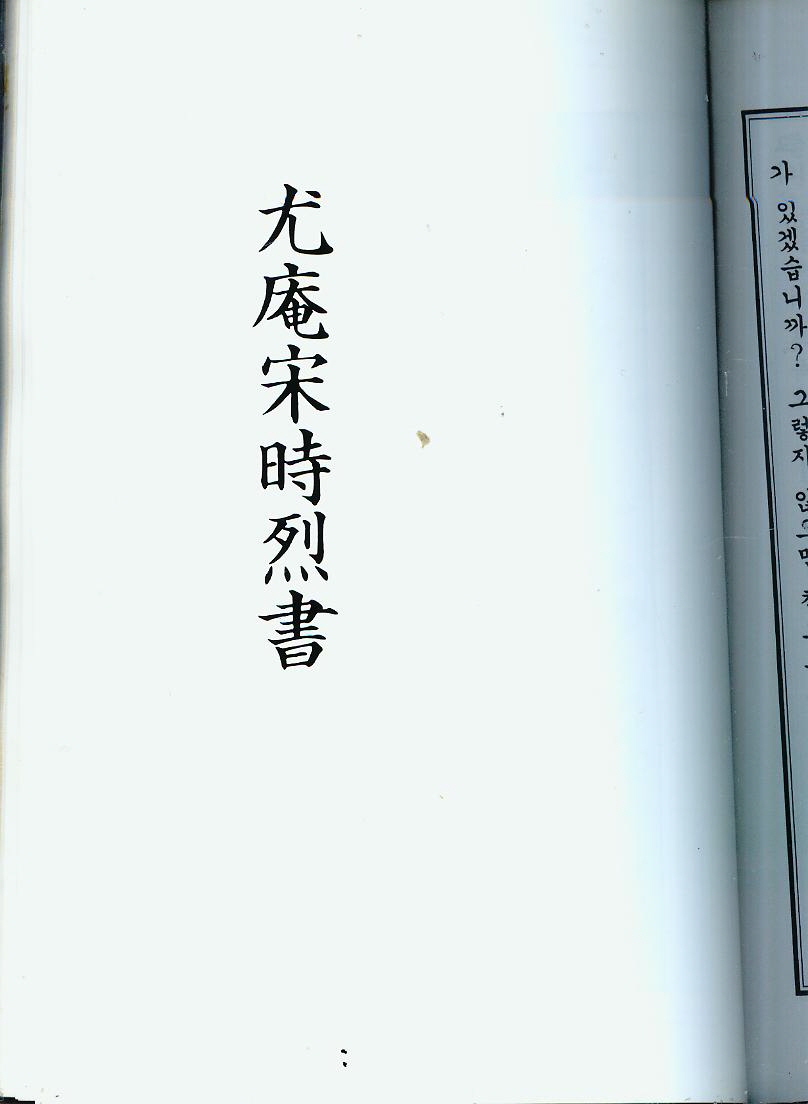 가 있겠습니까? 그렇지 않으면
尤庵宋時烈書